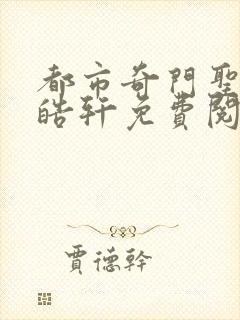 都市奇門聖
皓軒免費閱
賈德幹